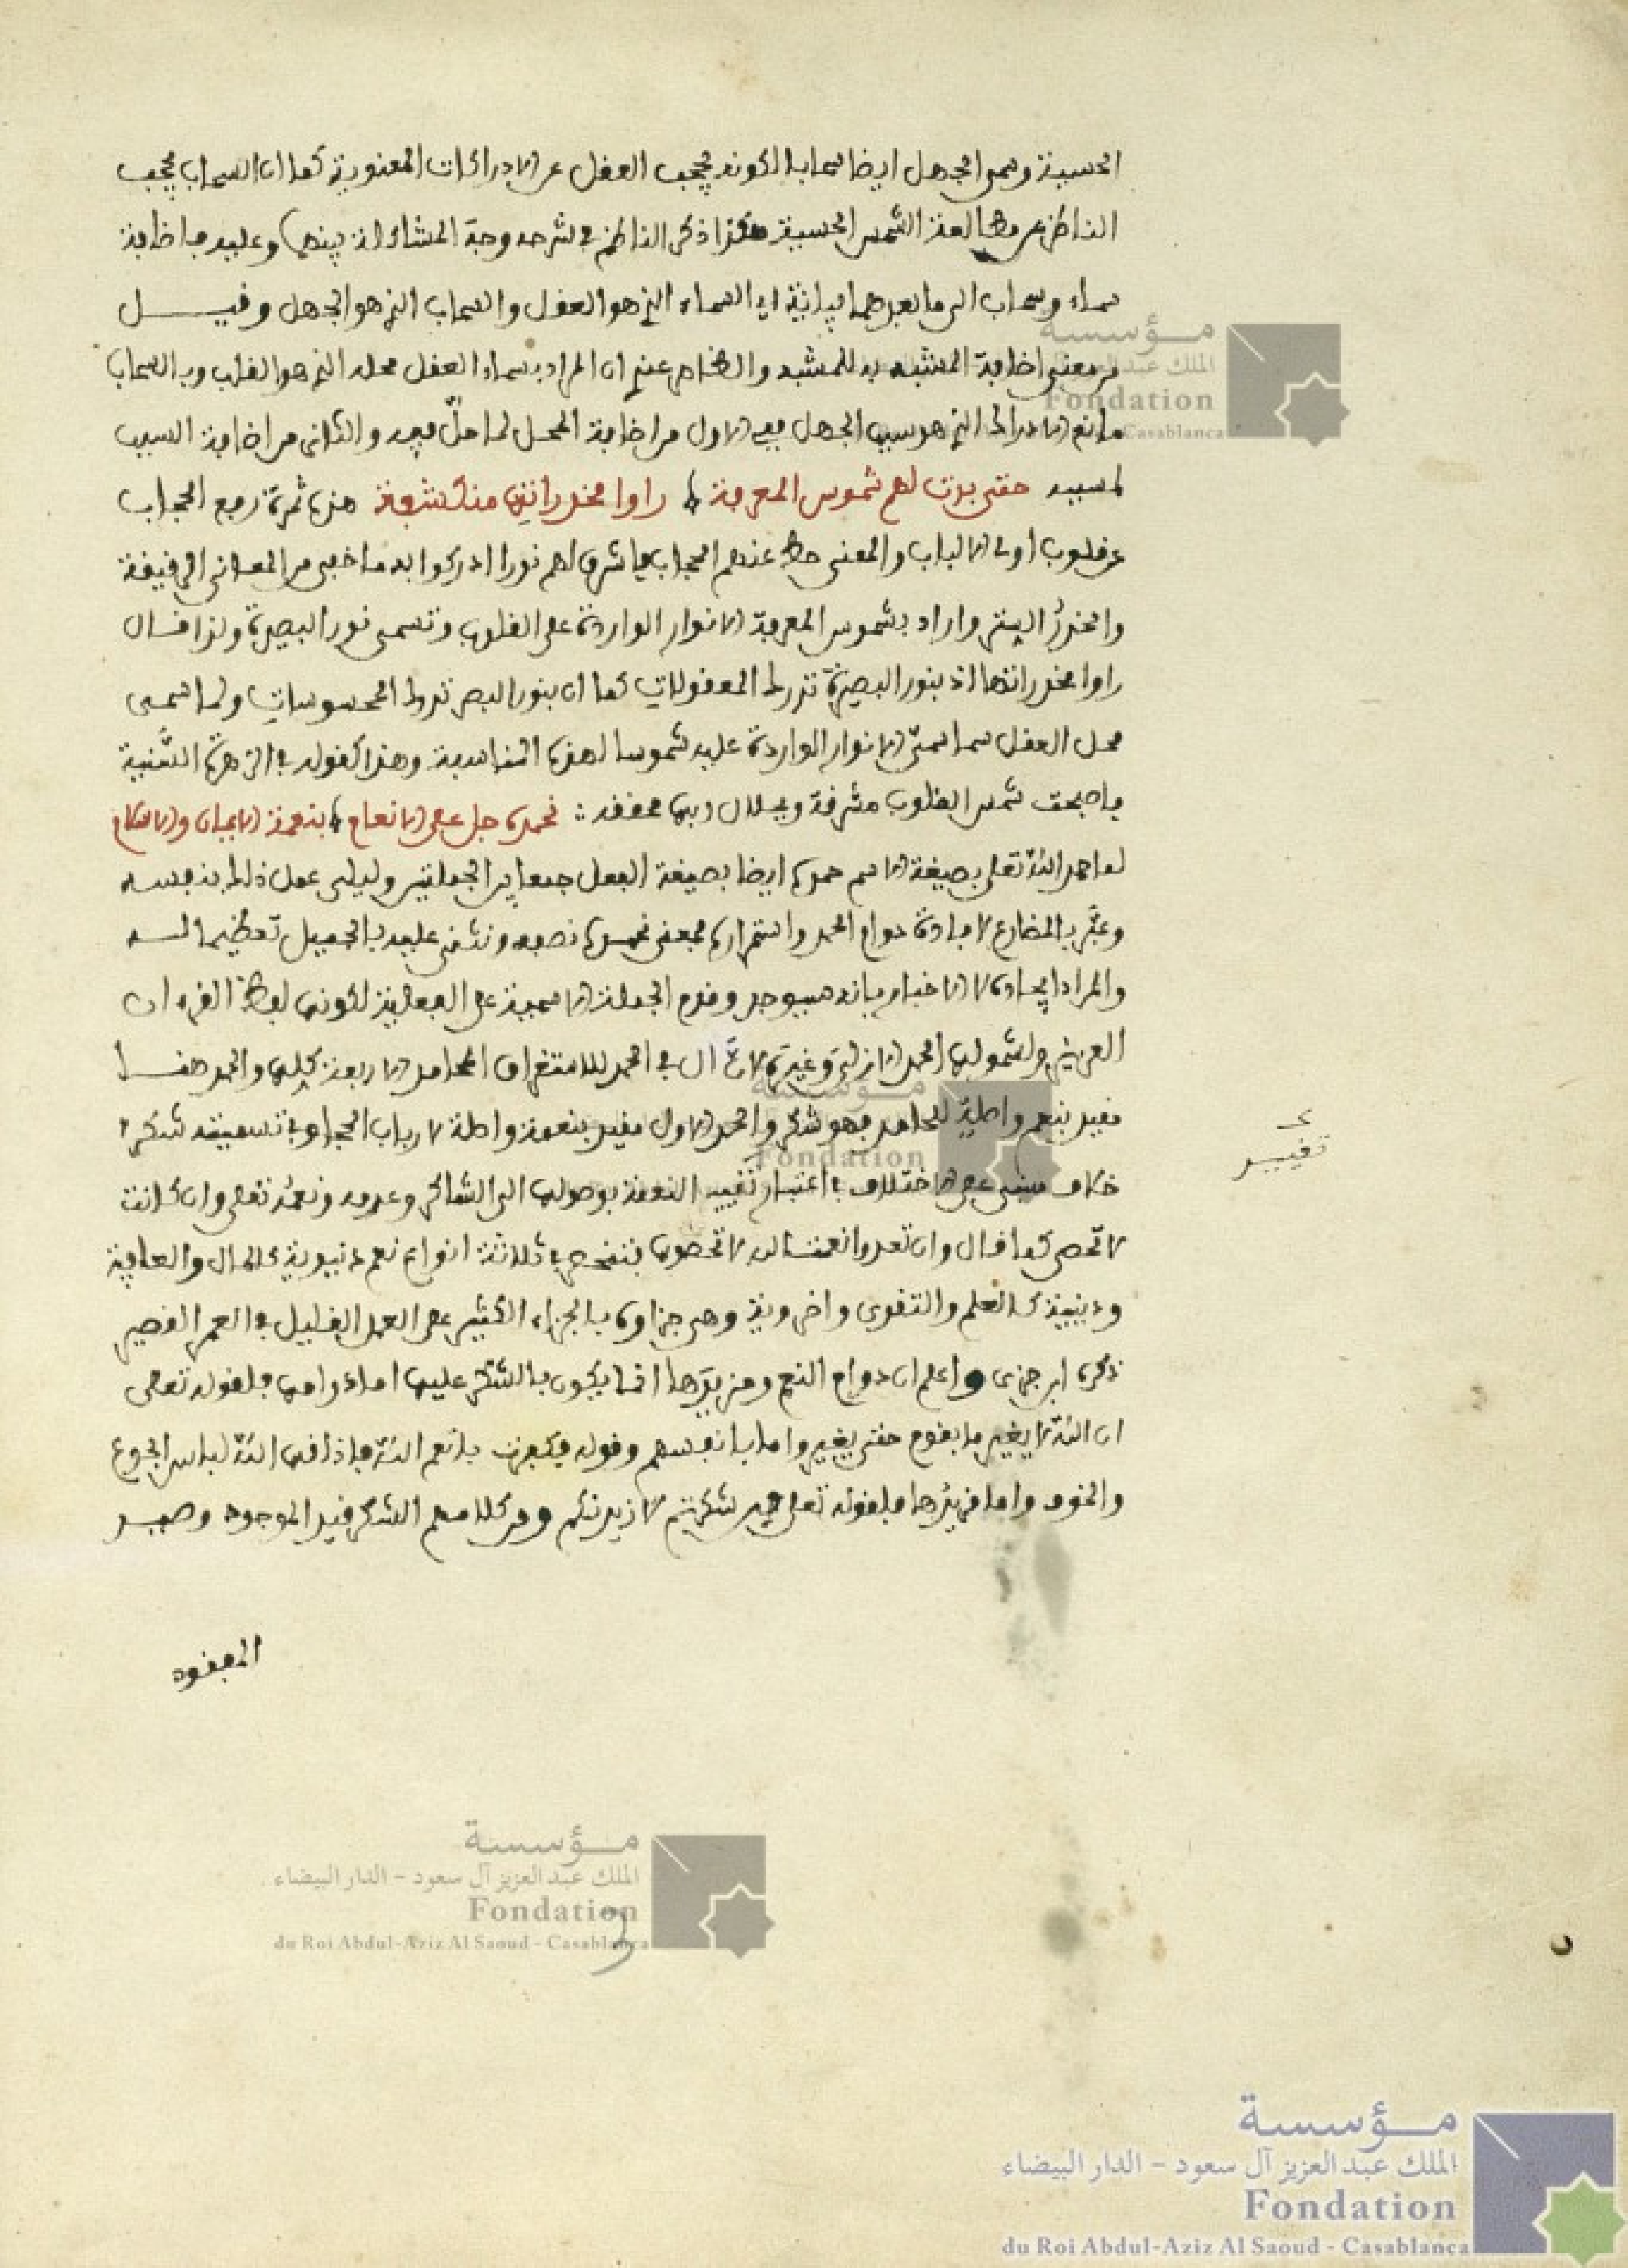 الحسية وسمى الجهل ايضا سحابا لكونه يحجب العقل عن الادراكات المعنوية كما ان السحاب يحجب
الناظر عن مطالعة الشمس الحسية هكذا ذكر الناظم في شرحه وجه المشاكلة بينهما وعليه فاضافة
سماء وسحاب الى ما بعدهما بيانية اي السماء الذي هو العقل والسحاب الذي هو الجهل وقيل
من معنى اضافة المشبه به للمشبه والظاهر عندي ان المراد بسماء العقل محله الذي هو القلب وبالسحاب
مانع الادراك الذي هو سبب الجهل ففي الاول من اضافة المحل لما حلّ فيه والثاني من اضافة السبب
لمسببه حتى بدت لهم شموس المعرفة راوا مخدراتها منكشفة هذه ثمرة رفع الحجاب
عن قلوب اولى الالباب والمعنى حط عنهم الحجاب فاشرق لهم نورا ادركوا به ما خفي من المعاني الرقيقة
والخدرُ الستر واراد بشموس المعرفة الانوار الواردة على القلوب وتسمى نور البصيرة ولذا قال
راوا مخدراتها اذ بنور البصيرة تدرك المعقولات كما ان بنور البصر تدرك المحسوسات ولما سمى
محل العقل سما سمّى الانوار الواردة عليه شموسا لهذه المناسبة وهذا كقوله في الزهرة السَّنية
فاصبحت شمس القلوب مشرفة وبجلال ربها محققة نحمده جل على الانعام بنعمة الايمان والاسلام
لما حمد الله تعلى بصيغة الاسم حمده ايضا بصيغة الفعل جمعا بين الجملتين وليلى عمل ذلك بنفسه
وعبَّر بالمضارع لافادة دوام الحمد واستمراره فمعنى نحمده نصفه ونثني عليه بالجميل تعظيما له
والمراد ايجاده لا الاخبار بانه سيوجد وقدم الجملة الاسمية على الفعلية لكونها لفظ القرءان
العزيز ولشمولها الحمد الازلي وغيره لانّ ال في الحمد للاستغراق المحامد الاربعة كلها والحمد هنا
مقيد بنعم واصلة للحامد فهو شكر والحمد الاول مقيد بنعمة واصلة لارباب الحجا وفي تسميته شكرا
خلاف مبنى على الاختلاف في اعتبار تقييد النعمة بوصولها الى الشاكر وعدمه ونعمه تعلى وان كانت
لا تحصى كما قال وان تعدوا نعمت الله لا تحصوها فتنحصر في ثلاثة انواع نعم دنيوية كالمال والعافية
ودينية كالعلم والتقوى واخروية وهي جزاوه بالجزاء الكثير على العمل القليل في العمر القصير
ذكره ابن جزى واعلم ان دوام النعم ومزيدها انما يكون بالشكر عليها اما دوامها فلقوله تعلى
ان الله لا يغير ما بقوم حتى يغيروا ما بانفسهم وقوله فكفرت بانعم الله فاذاقها الله لباس الجوع
والخوف واما مزيدها فلقوله تعلى لين شكرتم لازيدنكم ومن كلامهم الشكر قيد الموجود وصيد
المفقود
تقييد
مؤسسة
الملك عبد العزيز آل سعود - الدار البيضاء
Fondation
du Roi Abdul-Aziz Al Saoud - Casablanca
3